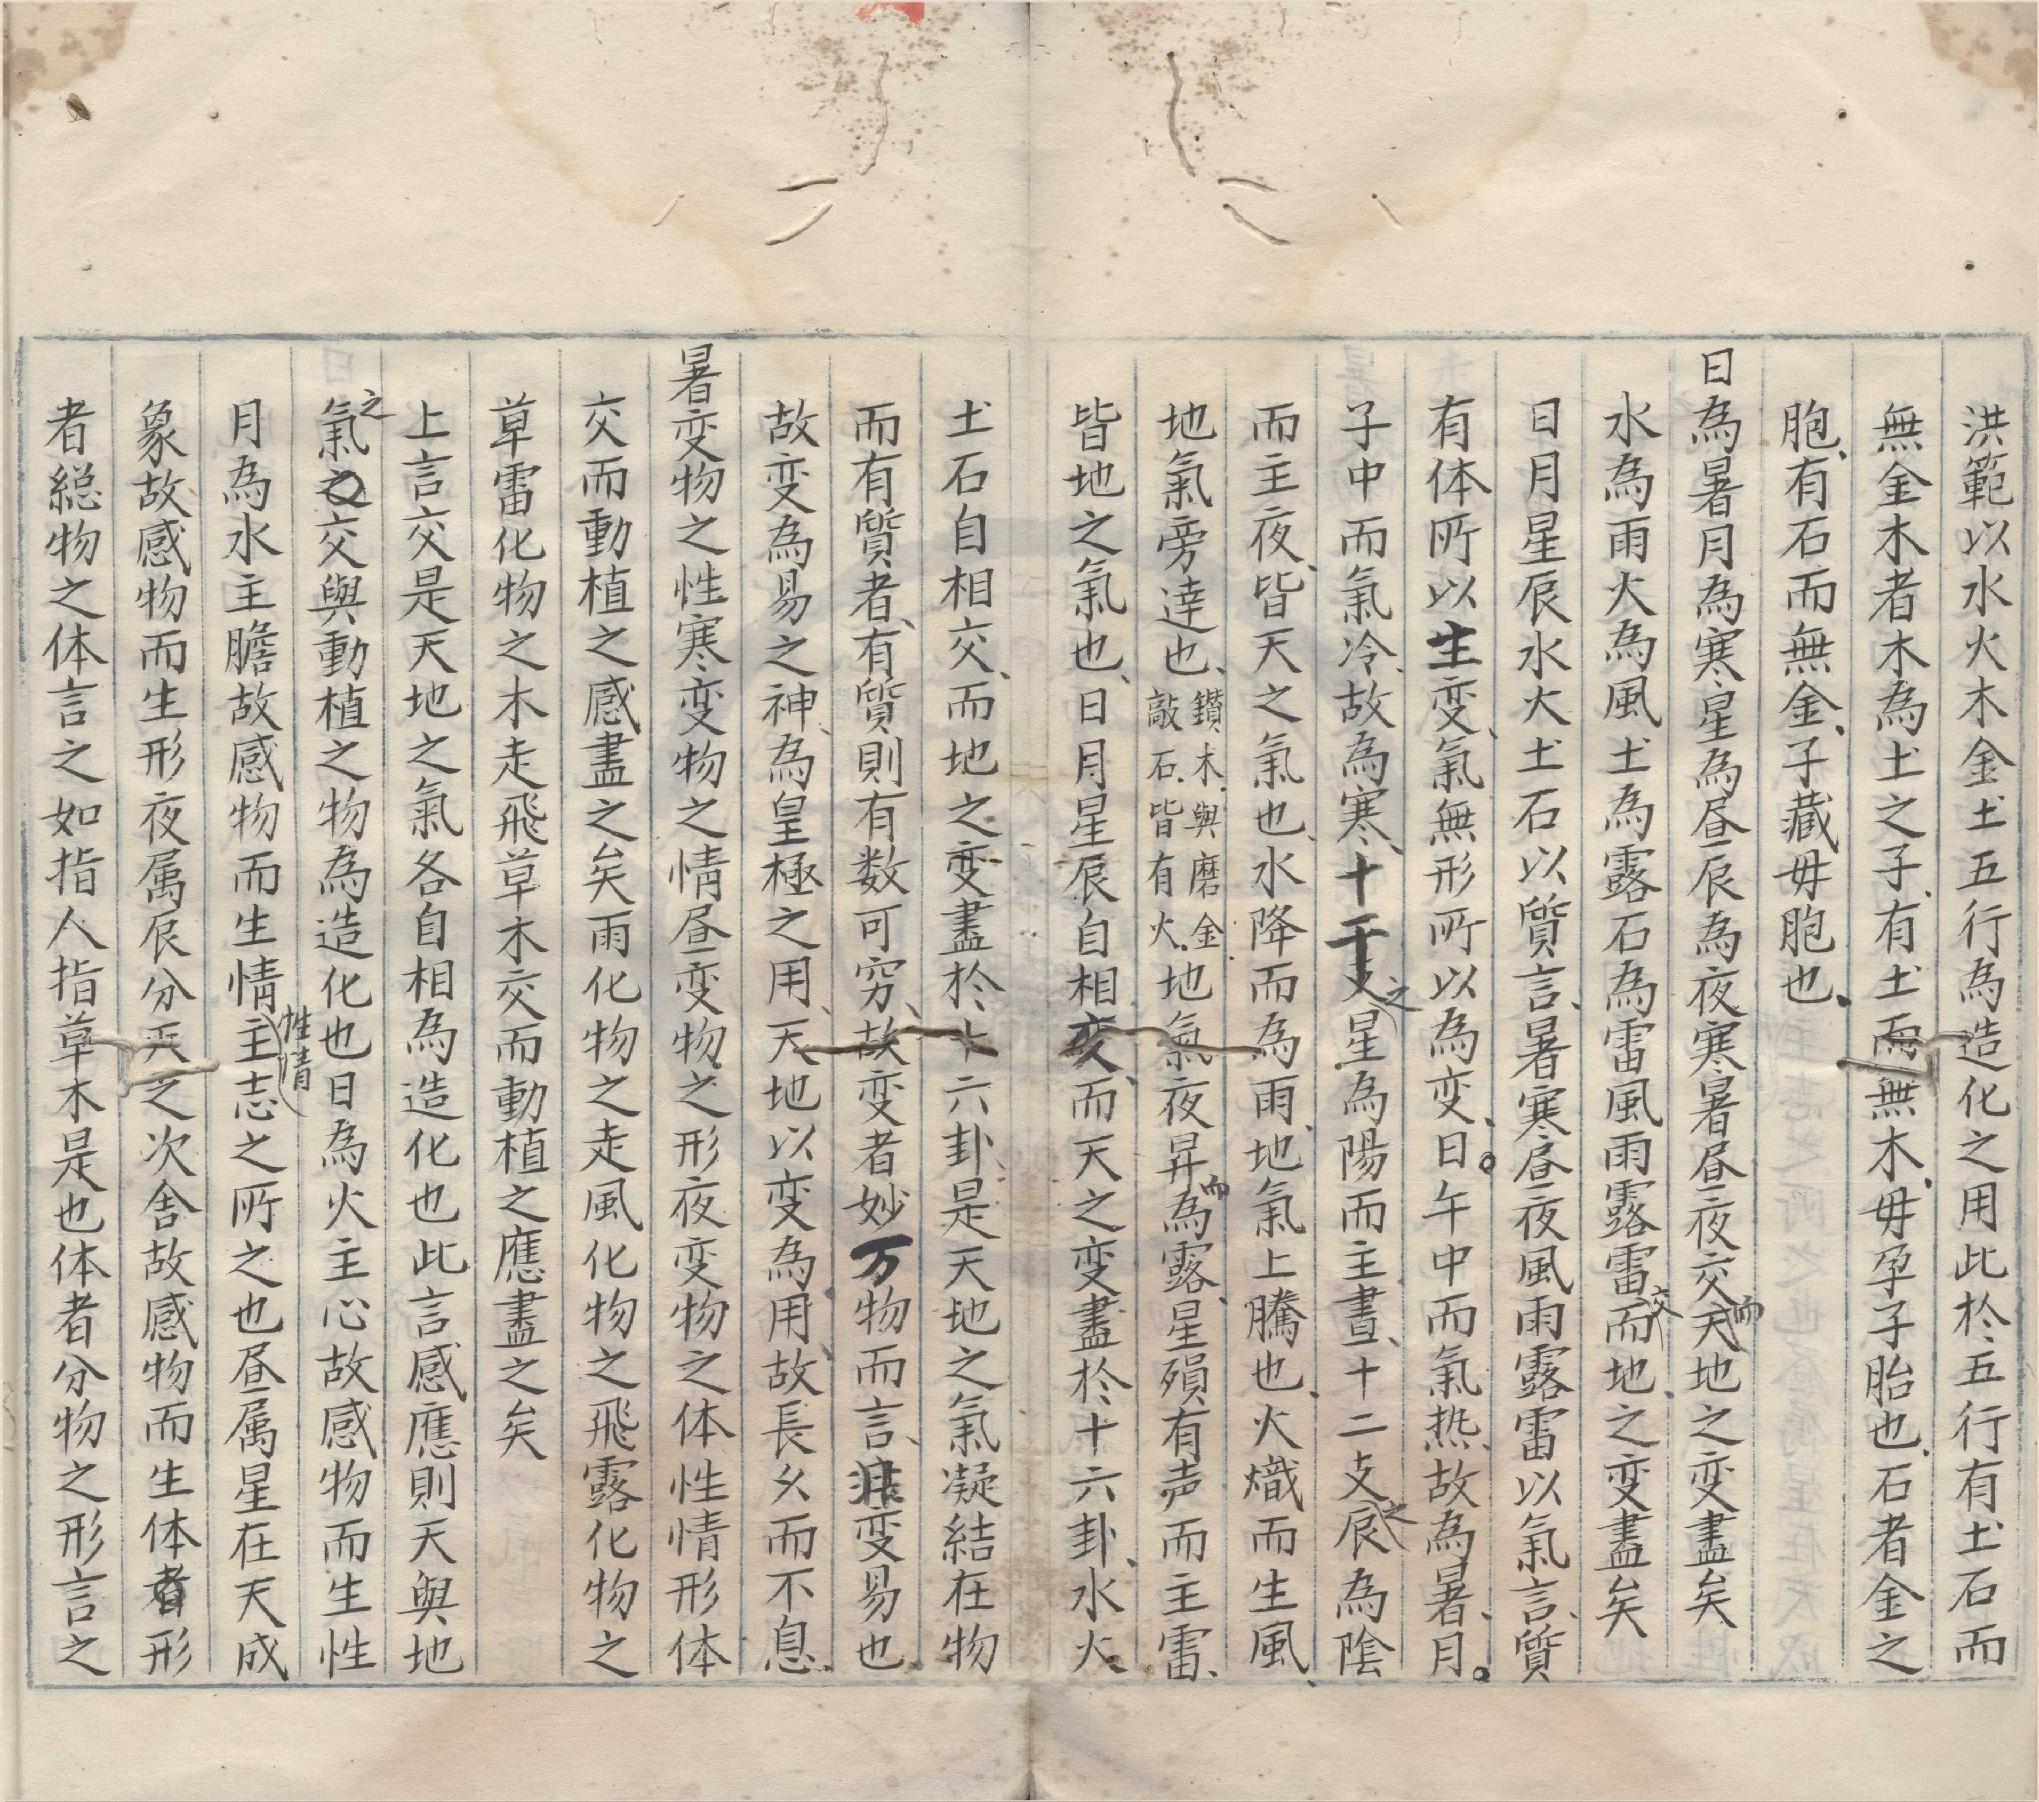 洪範以水火木金土五行為造化之用此於五行有土石而
無金木者木為土之子有土而無木毋孕子胎也石者金之
胞有石而無金子藏毋胞也
日為暑月為寒星為昼辰為夜寒暑昼夜交而天地之变盡矣
水為雨火為風土為露石為雷風雨露雷交而地之变盡矣
日月星辰水火土石以質言暑寒昼夜風雨露雷以氣言質
有体所以生变氣無形所以為变日午中而氣热故為暑月
子中而氣冷故為寒十干之星為陽而主晝十二支之辰為陰
而主夜皆天之氣也水降而為雨地氣上騰也火熾而生風
地氣旁達也鑽木與磨金敲石皆有火地氣夜昇而為露星殞有声而主雷
皆地之氣也日月星辰自相变而天之变盡於十六卦水火
土石自相交而地之变盡於十六卦是天地之氣凝結在物
而有質者有質則有数可穷故变者妙万物而言非变易也
故变為易之神為皇極之用天地以变為用故長久而不息
暑变物之性寒变物之情昼变物之形夜变物之体性情形体
交而動植之感盡之矣雨化物之走風化物之飛露化物之
草雷化物之木走飛草木交而動植之應盡之矣
上言交是天地之氣各自相為造化也此言感應則天與地
之氣交與動植之物為造化也日為火主心故感物而生性
月為水主膽故感物而生情性情主志之所之也昼属星在天成
象故感物而生形夜属辰分天之次舍故感物而生体者形
者総物之体言之如指人指草木是也体者分物之形言之